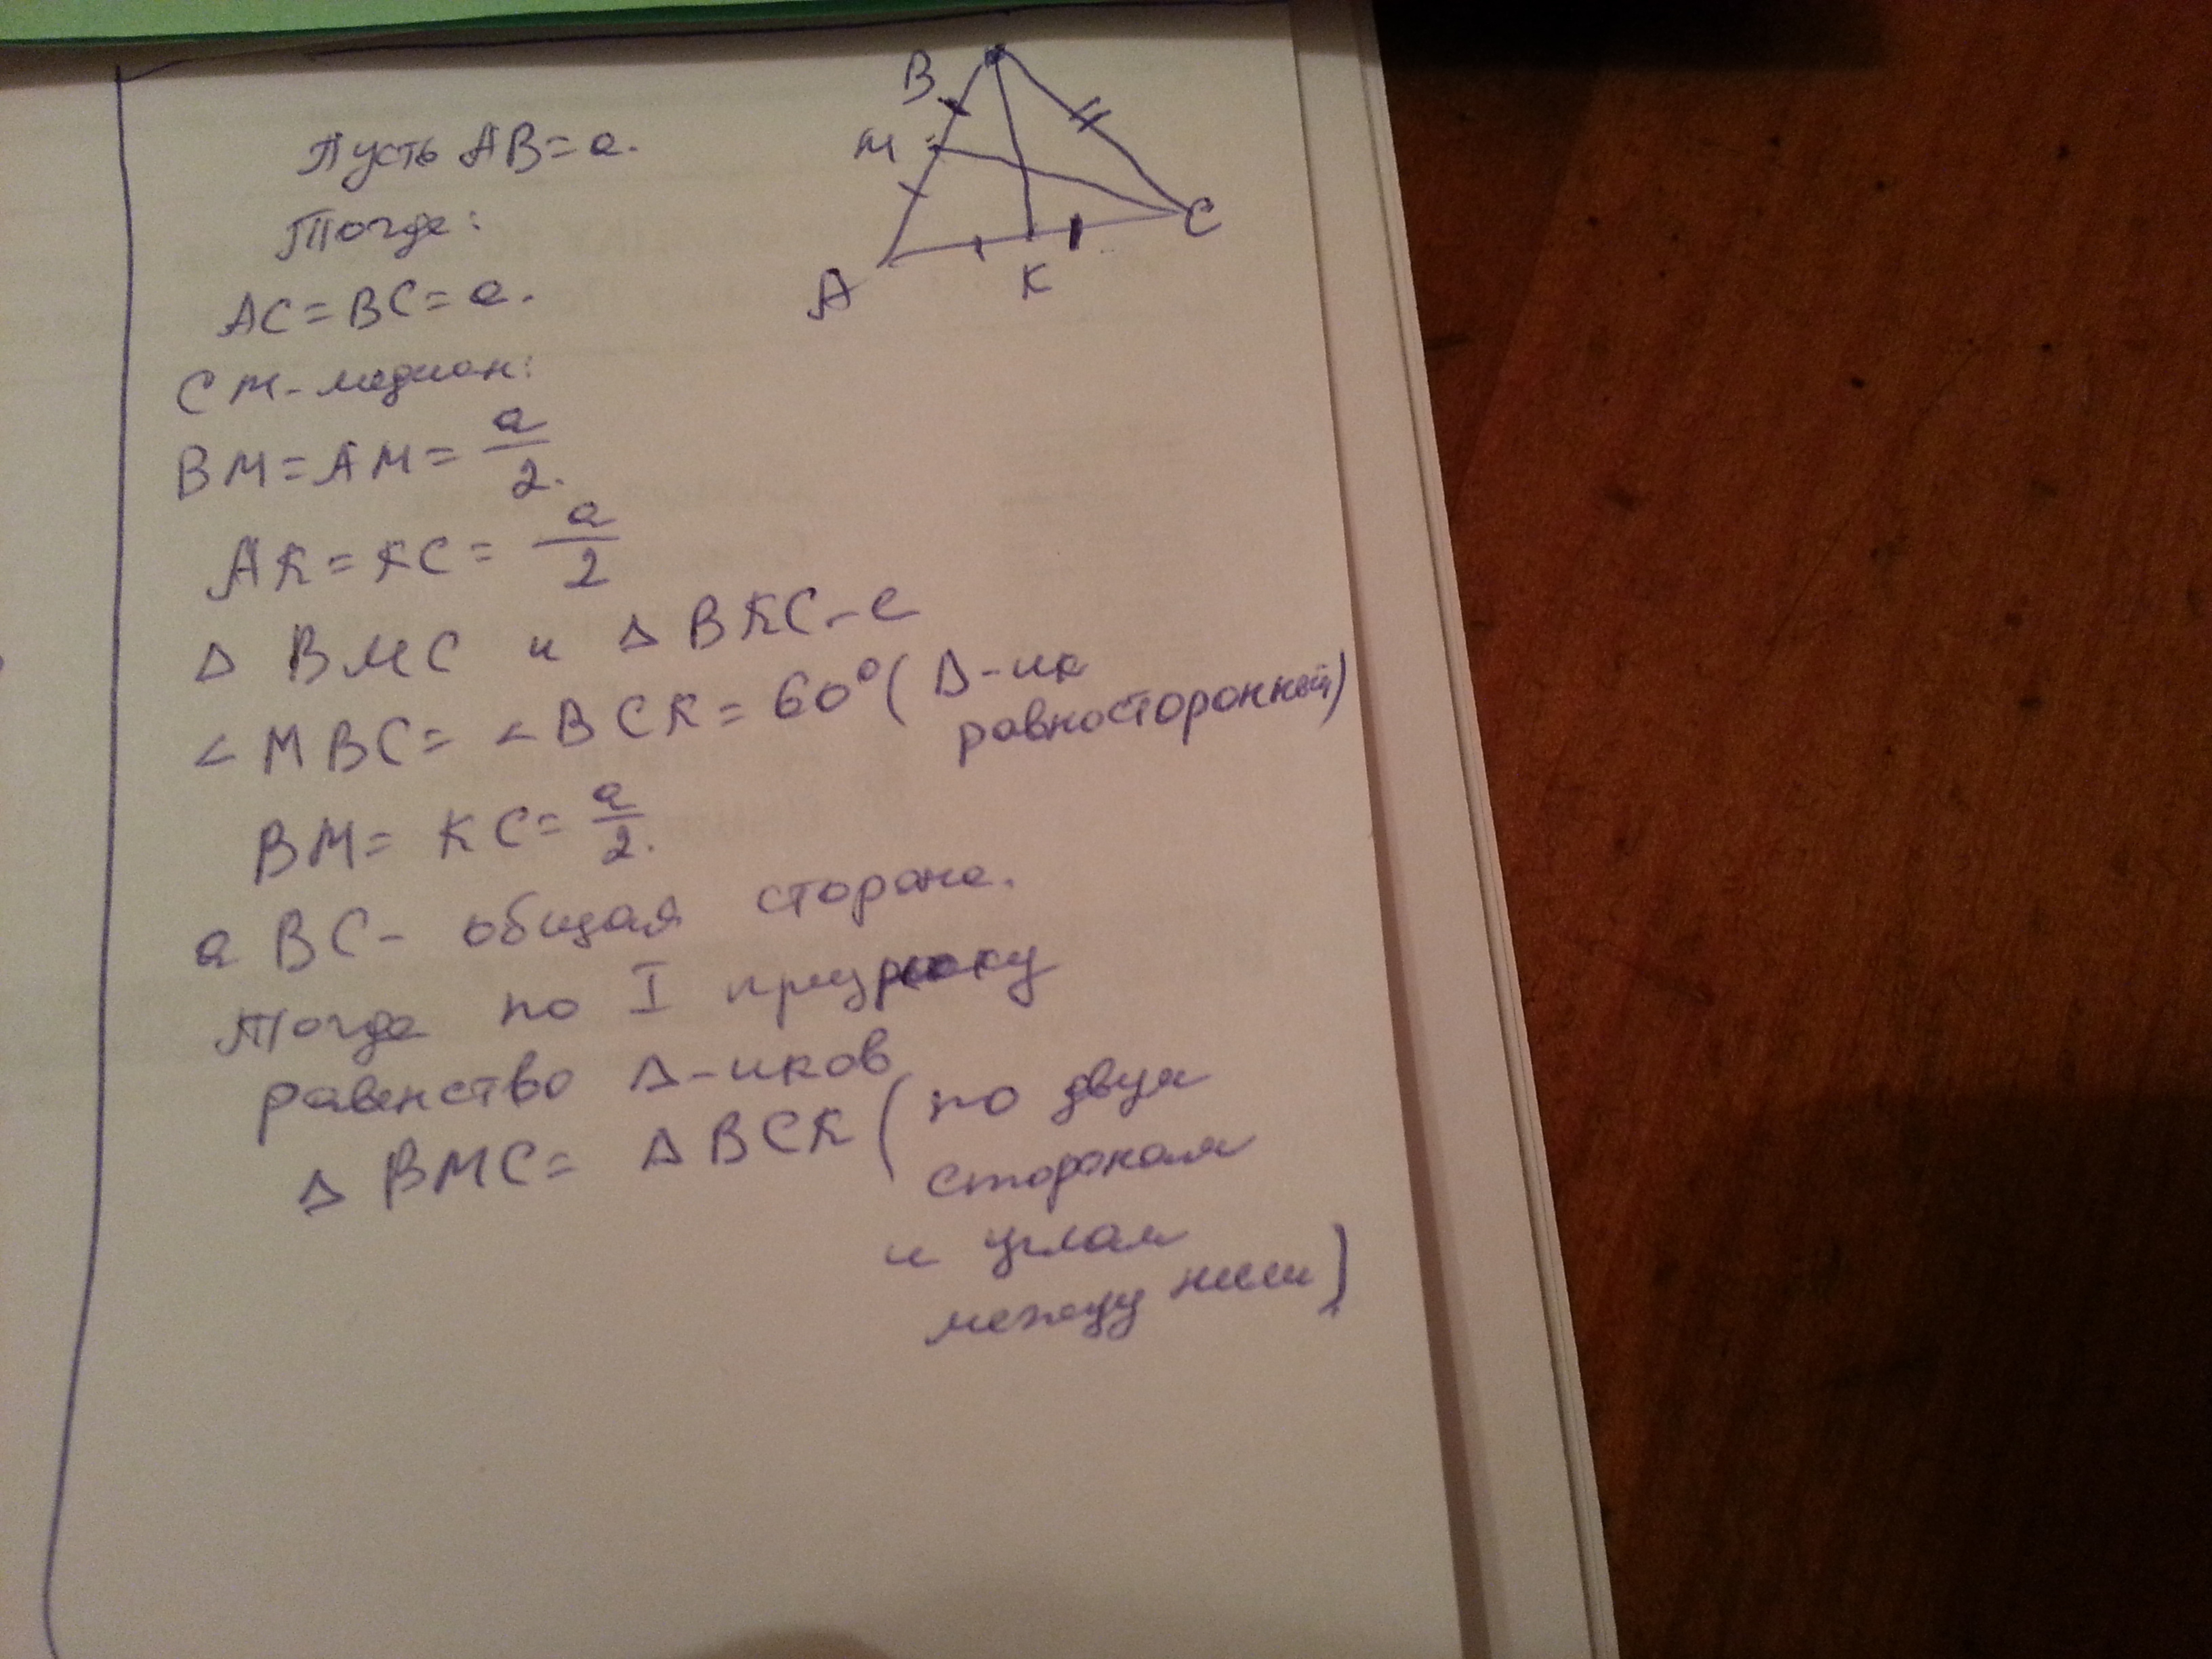 Пусть AB = a.
Тогда:
AC = BC = a.
CM - медиан:
BM = AM = a/2.
AK = KC = a/2
Δ BMC и Δ BKC - c
∠ MBC = ∠ BCK = 60° ( Δ-ик
равносторонний)
BM = KC = a/2.
а BC - общая сторона.
Тогда по I признаку
равенство Δ-иков
Δ BMC = Δ BCK ( по двум
сторонам
и углам
между ними)
B
M
A
K
C